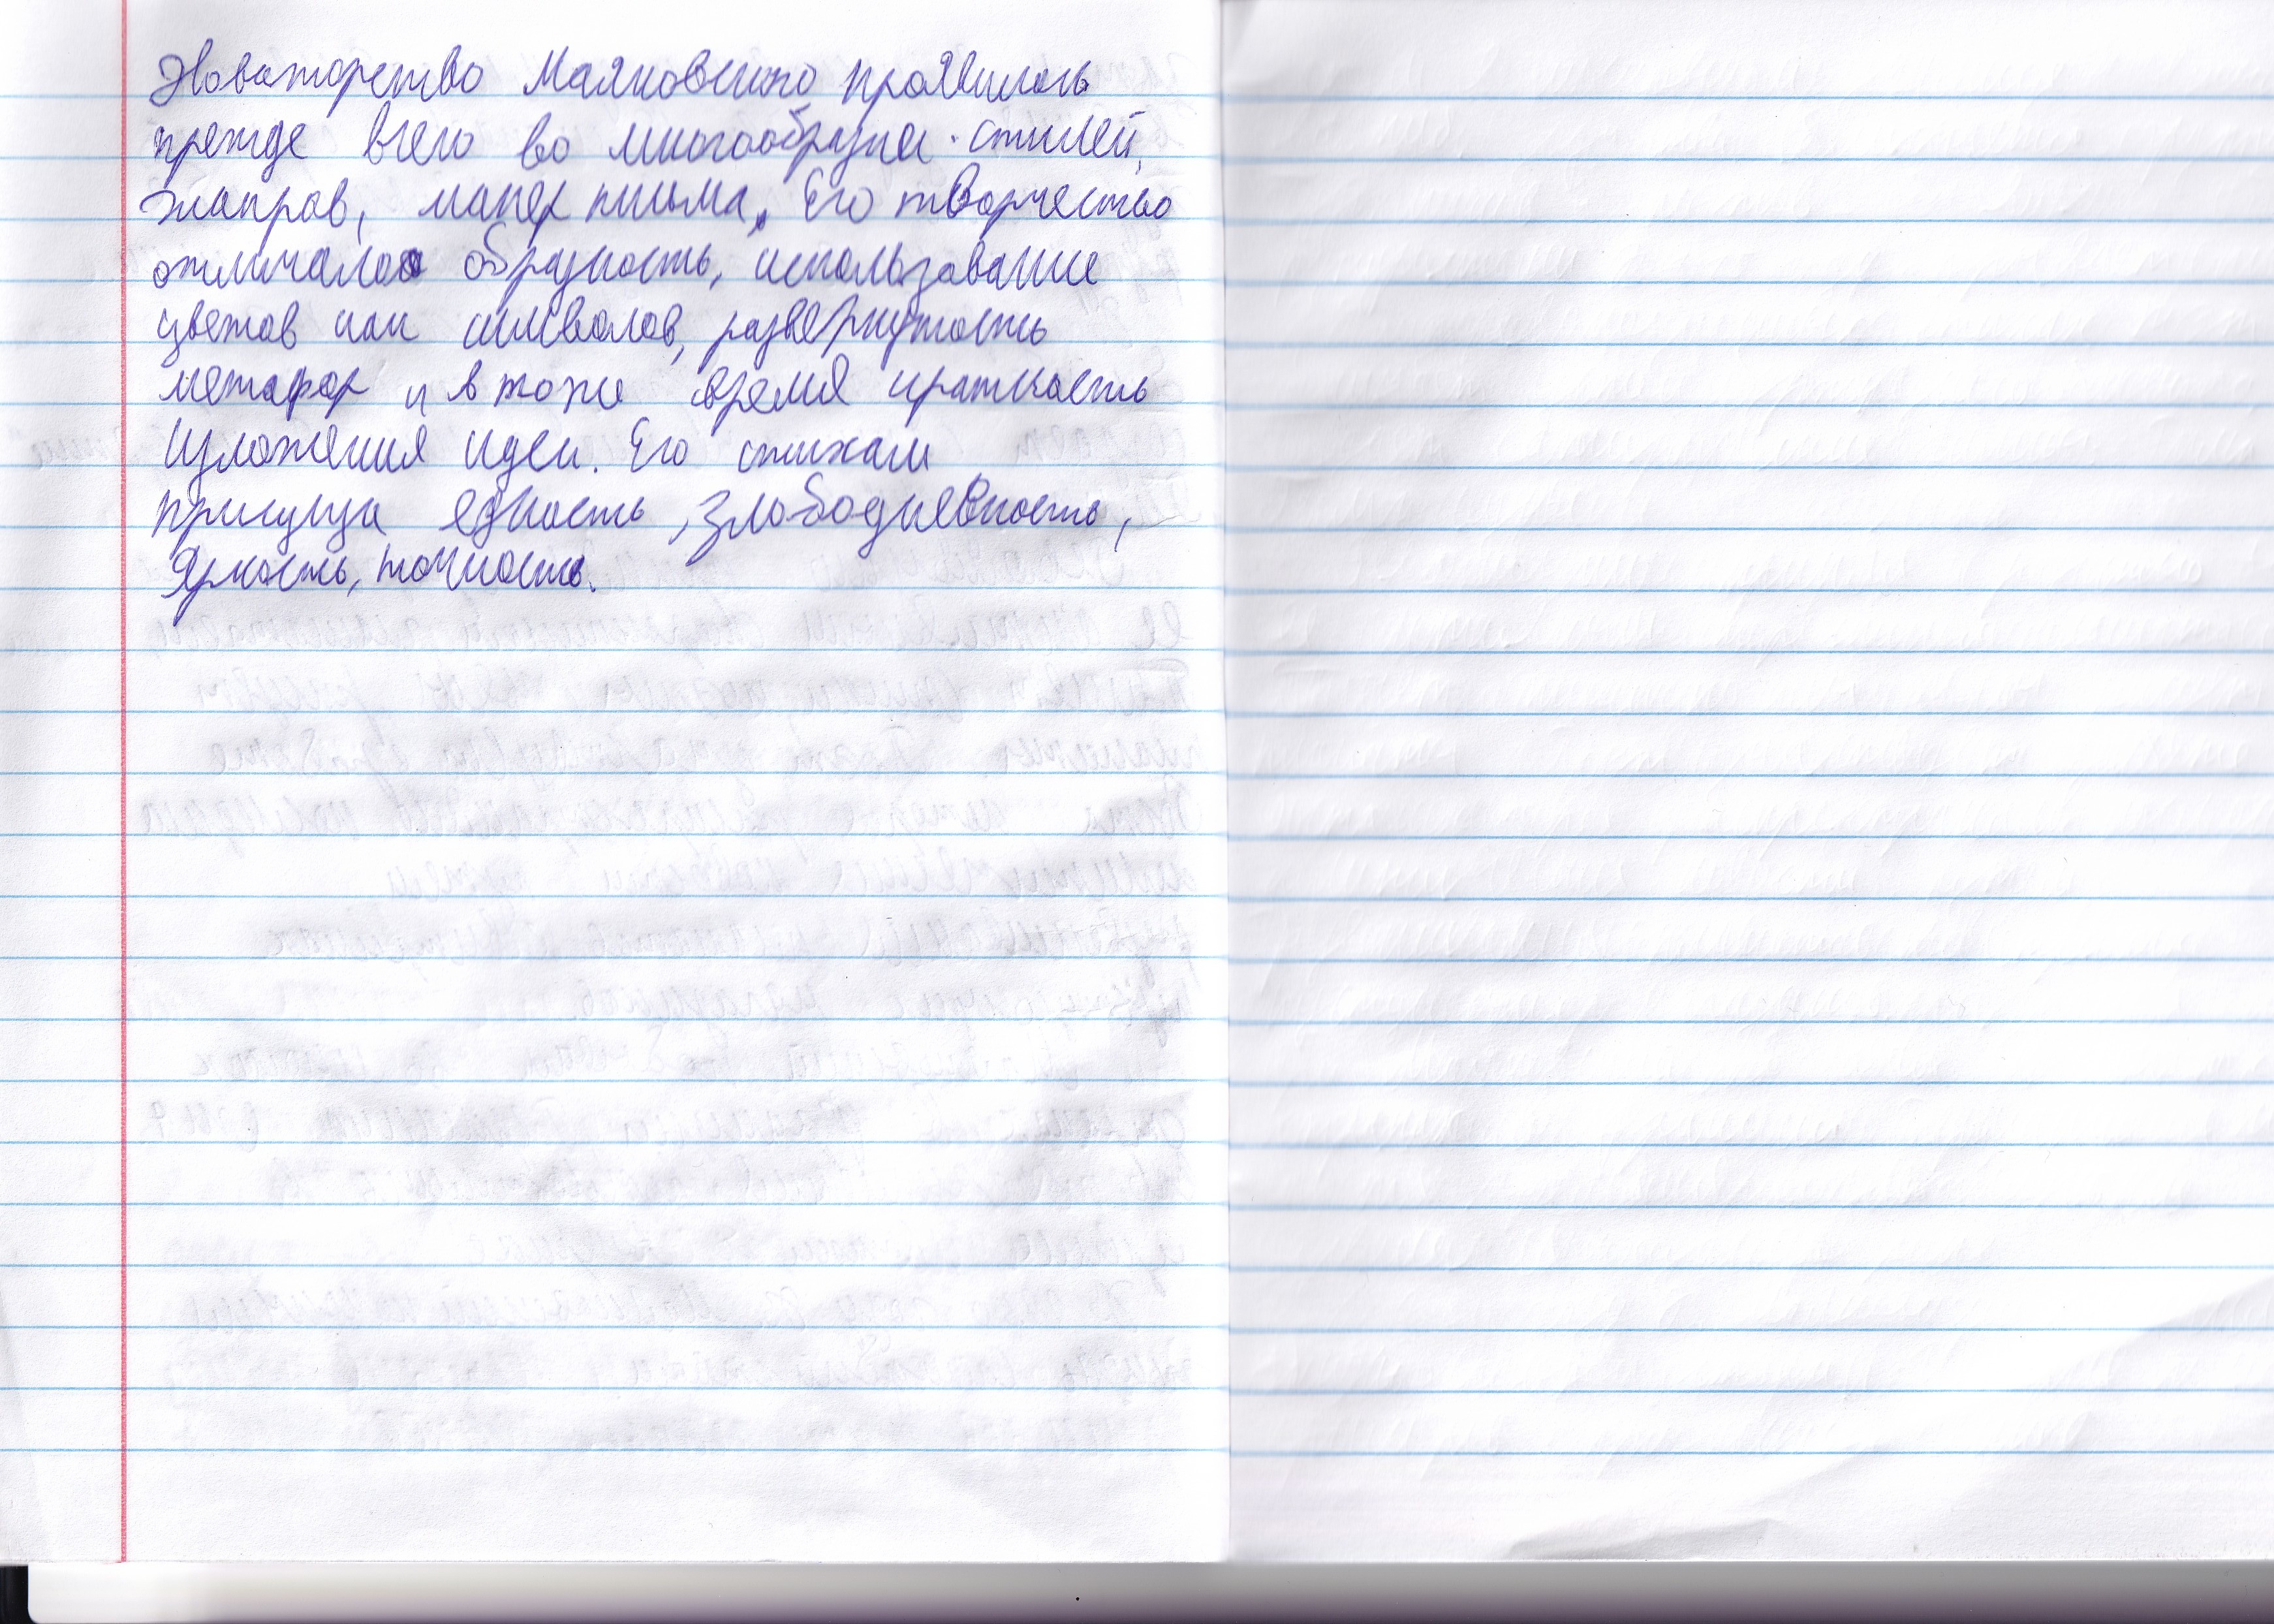 Новаторство Маяковского проявилось
прежде всего во многообразии стилей,
жанров, манер письма. Его творчество
отличало образность, использование
цветов как символов, развернутость
метафор и в тоже время краткость
изложения идеи. Его стихам
присуща едкость, злободневность,
яркость, точность.